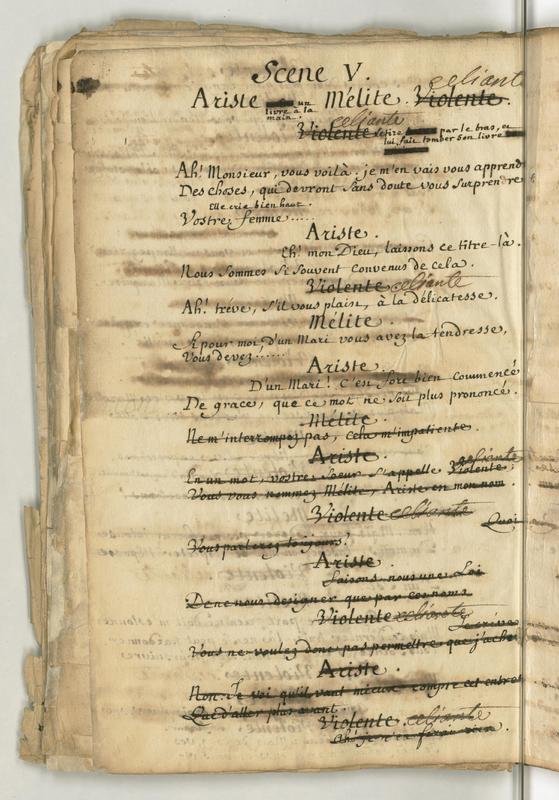 Scene V.
celiante
Ariste un Mélite. Violente.
livre à la
main.
celiante
Violente, le tire par le bras, et
lui fait tomber son livre
Ah! Monsieur, vous voilà. je m'en vais vous apprend
Des choses, qui devront sans doute vous surprendre
Elle crie bien haut.
Vostre femme.....
Ariste.
Eh! mon Dieu, laissons ce titre-là.
Nous sommes si souvent convenus de cela.
Violente celiante
Ah! tréve, s'il vous plaist, à la délicatesse.
Mélite.
Et pour moi, D'un Mari vous avez la tendresse,
Vous devez......
Ariste.
D'un Mari! C'est fort bien commencé
De grace, que ce mot ne soit plus prononcé.
Mélite.
Ne m'interrompez pas, cela m'impatiente.
Ariste.
celiante
En un mot, vostre soeur s'appelle Violente;
Vous vous nommez Mélite, Ariste en mon nom.
Violente celiante
Quoi
Vous parlerez toujours!
Ariste.
Faisons nous une Loi
De ne nous designer que par ces noms.
Violente celiante
Vous ne voulez donc pas permettre que j'ache
Ariste.
Non. Je voi qu'il vaut mieux rompre cet entret
Que d'aller plus avant.
Violente. celiante
Ah! je n'en ferai rien.